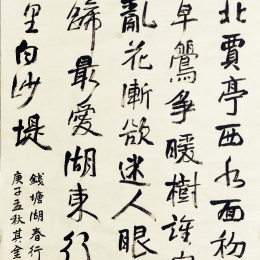 北賈亭西水面初
早鶯爭暖樹誰
亂花漸欲迷人眼
蹄最愛湖東行
里白沙堤
錢塘湖春行
庚子孟秋其